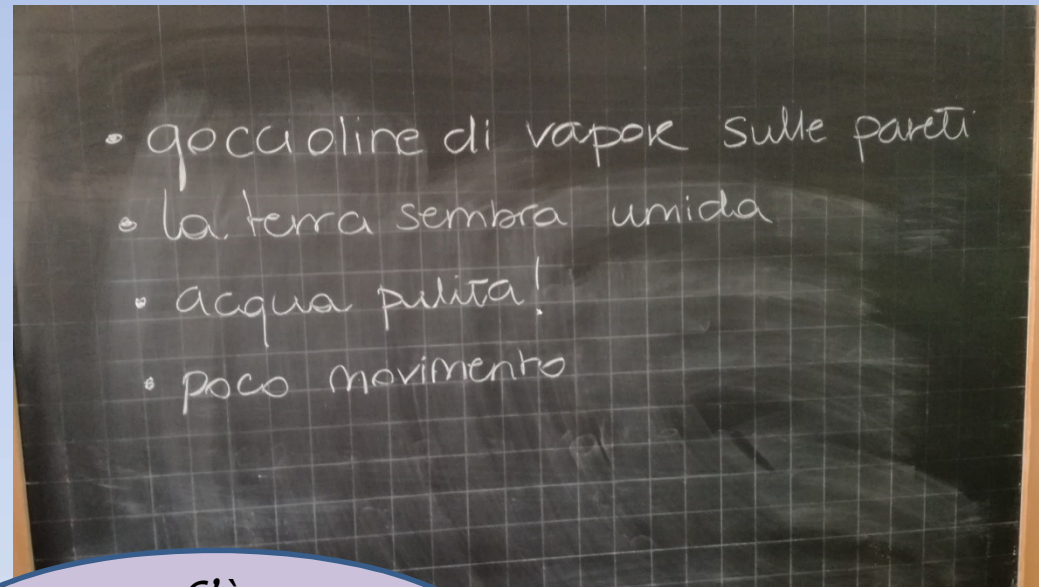 • goccioline di vapore sulle pareti
• la terra sembra umida
• acqua pulita!
• poco movimento